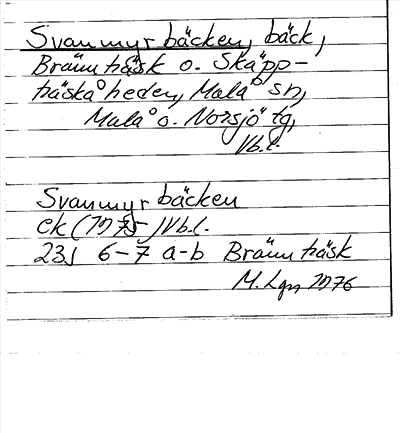 Svanmyrbäcken, bäck,
Brännträsk o. Skäpp-
träskåheden, Malå sn,
Malå o. Norsjö tg,
Vb.l.
Svanmyrbäcken
ek (1975) Vb.l.
23J 6-7 a-b Brännträsk
M. Lgn 1976